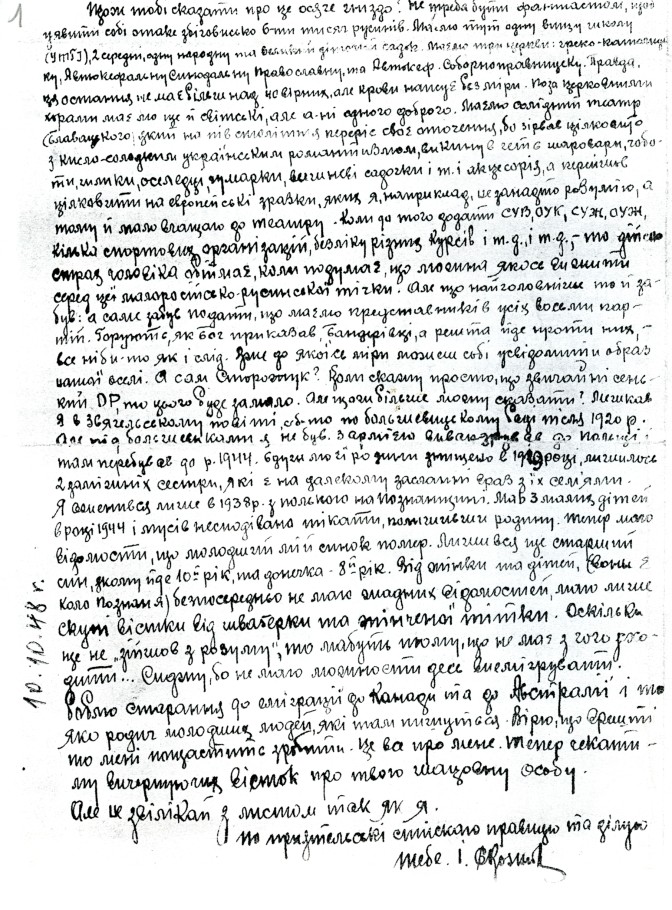 1
Що ж тобі сказати про це осяче гніздо? Не треба бути фантастом, щоб
уявити собі отаке збіговисько 6-ти тисяч русинів. Маємо тут одну вищу школу
(УТГІ), 2 середні, одну народну та великий дитячий садок. Маємо три церкви: греко-католицьку,
ку, Автокефальну Синодальну Православну, та Автокеф. Соборноправницьку. Правда,
ця остання не має більш над чо вірних, але крови напсує без міри. Поза церковними
хорами маємо ще й світські, але а-ні одного доброго. Маємо солідний театр
(Блавацького), який на пів століття переріс своє оточення, бо зірвав цілковито
з кисло-солодким українським романтизмом, викинув геть шаровари, чобо-
ти, гилки, оселедці, чумарки, вишневі садочки і т.і. аксесорія, а перейшов
цілковито на европейські зразки, яких я, наприклад, не занадто розумію, а
тому й мало вчащаю до театру. Коли до того додати СУВ, ОУК, СУЖ, ОУЖ,
кілька спортових організацій, безліку різних курсів і т.д., і т.д., – то дійсно
страх чоловіка обіймає, коли подумає, що людина якось вижити
серед цієї малоросійсько-русинської тічки. Але що найголовніше то й за-
був: а саме забув подати, що маємо представників усіх восьми пар-
тій. Горують, як Бог приказав, бандерівці, а решта йде проти них, –
все ніби-то як і слід. Вже до якоїсь міри можеш собі усвідомити образ
нашої оселі. А сам Сторожук? Коли скажу просто, що звичайнісень-
кий DP, то цього буде замало. Але що ж більше можу сказати? Мешкав
я в Звягельському повіті, об-то по большевицькому боці після 1920 р.
Але під большевиками я не був. З армією вивакуував до Польщі і
там перебував до р. 1944. Будучи мої родини знищено в 1929 році, лишилось
2 заміжних сестри, які є на далекому засланні враз з їх сем'ями.
Я оженився лише в 1938 р. з полькою на Познанщині. Мав 3 малих дітей
в році 1944 і мусів несподівано тікати, полишивши родину. Тепер маю
відомости, що молодший мій синок помер. Лишився ще старший
син, якому йде 10ий рік, та донечка – 8ий рік. Від жінки та дітей, (вони є
коло Познаня) безпосередньо не маю жадних відомостей, маю лише
скупі вістки від швагерки та жінчиної тітки. Оскільки
ще не „зійшов з розуму", то мабуть тому, що не має з чого схо-
дити... Сиджу, бо не маю можности десь емігрувати.
Роблю старання до еміграції до Канади та до Австралії і то
яко родич молодших людей, які там пишуться. Вірю, що врешті
то мені пощастить зробити. Це все про мене. Тепер чекати-
му вичерпуючих вісток про твою шановну особу.
Але не звілікай з листом так як я.
По приятельські стискаю правицю та цілую
тебе. І.
10.10.48 г.